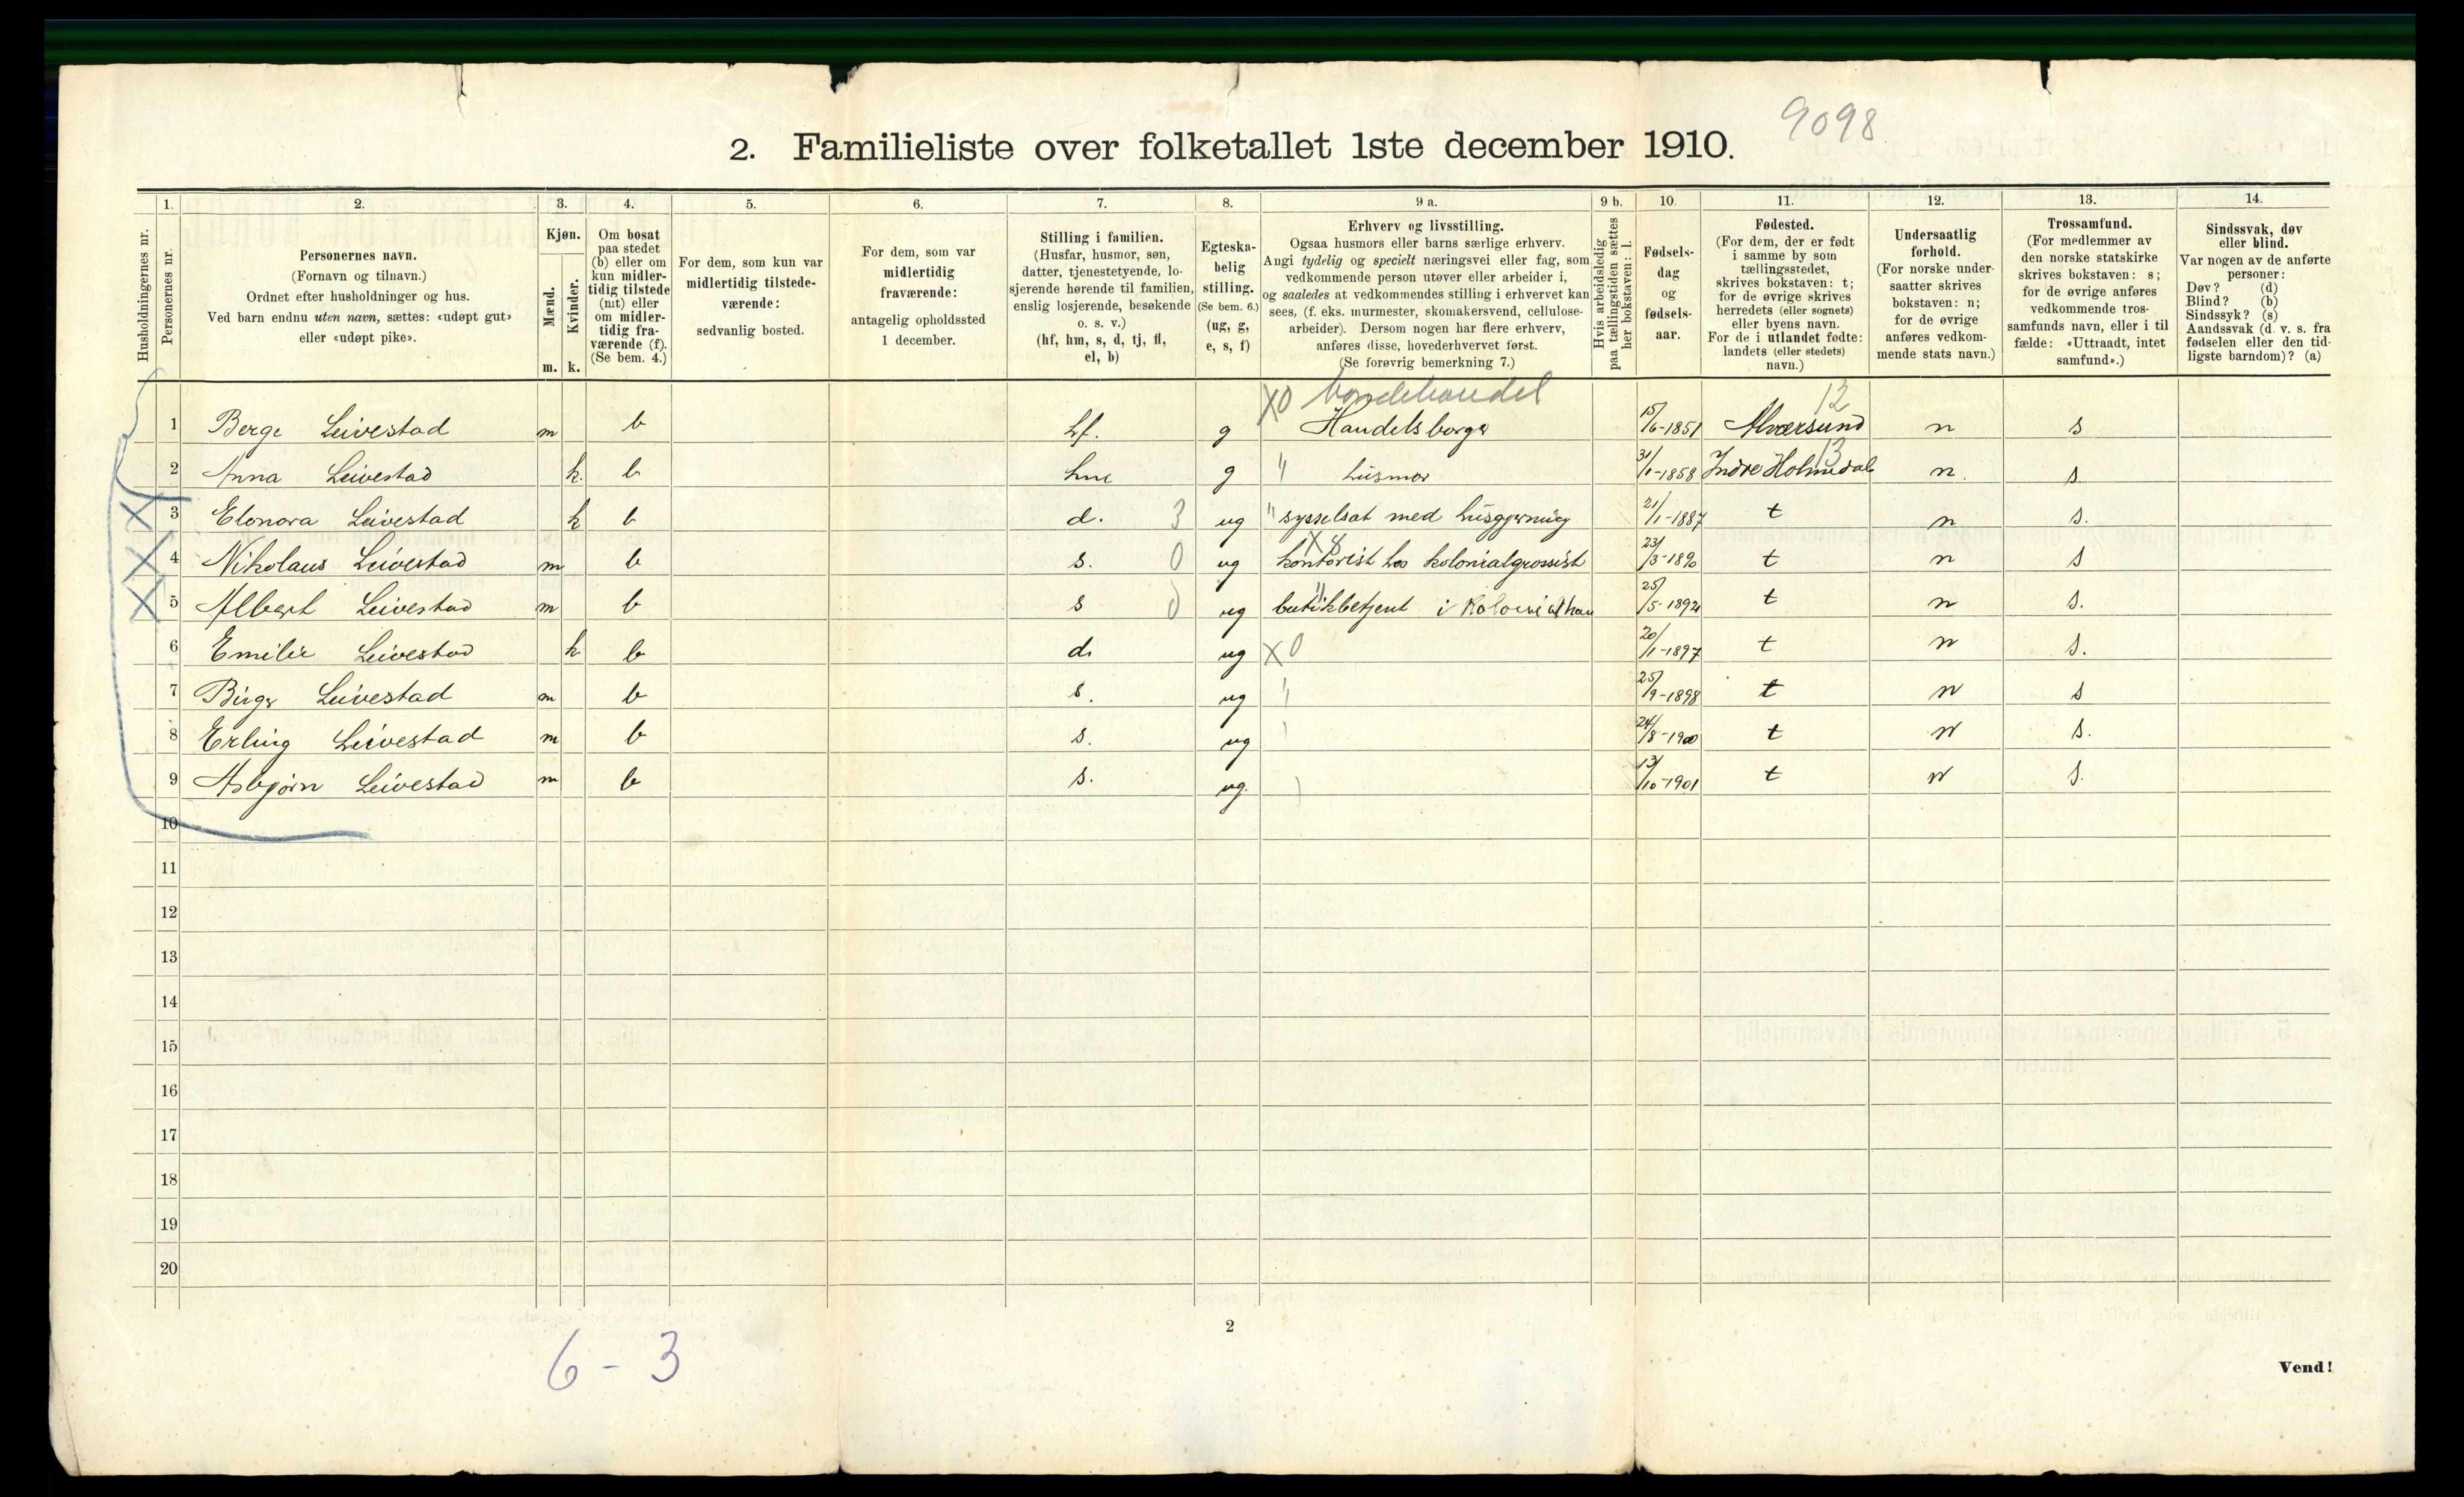 9098
2. Familieliste over folketallet 1ste december 1910.
1. 2. 3. 4. 5. 6. 7. 8. 9 a. 9 b. 10. 11. 12. 13. 14.
Husholdningernes nr.
Personernes nr.
Personernes navn.
(Fornavn og tilnavn.)
Ordnet efter husholdninger og hus.
Ved barn endnu uten navn, sættes: «udøpt gut»
eller «udøpt pike».
Kjøn.
Mænd.
Kvinder.
m. k.
Om bosat
paa stedet
(b) eller om
kun midler-
tidig tilstede
(mt) eller
om midler-
tidig fra-
værende (f).
(Se bem. 4.)
For dem, som kun var
midlertidig tilstede-
værende:
sedvanlig bosted.
For dem, som var
midlertidig
fraværende:
antagelig opholdssted
1 december.
Stilling i familien.
(Husfar, husmor, søn,
datter, tjenestetyende, lo-
sjerende hørende til familien,
enslig losjerende, besøkende
o. s. v.)
(hf, hm, s, d, tj, fl,
el, b)
Egteska-
belig
stilling.
(Se bem. 6.)
(ug, g,
e, s, f)
Erhverv og livsstilling.
Ogsaa husmors eller barns særlige erhverv.
Angi tydelig og specielt næringsvei eller fag, som
vedkommende person utøver eller arbeider i,
og saaledes at vedkommendes stilling i erhvervet kan
sees, (f. eks. murmester, skomakersvend, cellulose-
arbeider). Dersom nogen har flere erhverv,
anføres disse, hovederhvervet først.
(Se forøvrig bemerkning 7.)
Hvis arbeidsledig
paa tællingstiden sættes
her bokstaven: l.
Fødsels-
dag
og
fødsels-
aar.
Fødested.
(For dem, der er født
i samme by som
tællingsstedet,
skrives bokstaven: t;
for de øvrige skrives
herredets (eller sognets)
eller byens navn.
For de i utlandet fødte:
landets (eller stedets)
navn.)
Undersaatlig
forhold.
(For norske under-
saatter skrives
bokstaven: n;
for de øvrige
anføres vedkom-
mende stats navn.)
Trossamfund.
(For medlemmer av
den norske statskirke
skrives bokstaven: s;
for de øvrige anføres
vedkommende tros-
samfunds navn, eller i til
fælde: «Uttraadt, intet
samfund».)
Sindssvak, døv
eller blind.
Var nogen av de anførte
personer:
Døv? (d)
Blind? (b)
Sindssyk? (s)
Aandssvak (d. v. s. fra
fødselen eller den tid-
ligste barndom)? (a)
X0 12
1 Berge Leivestad m b hf. g Handelsborger 15/6-1851 Alværsund n s
13
2 Anna Leivestad k. b hm g " husmor 31/1-1858 Indre Holmedal n. s
3 Elonora Leivestad k b d. 3 ug " sysselsat med husgjerning 21/1-1887 t n s.
X8
4 Nikolaus Leivestad m b s. 0 ug kontorist hos kolonialgrossist 23/3-1890 t n s
5 Albert Leivestad m b s 0 ug butikbetjent i Kolonialhan 25/5-1892 t n s.
6 Emilie Leivestad k b d. ug X0 20/1-1897 t n s.
7 Birger Leivestad m b s. ug " 25/9-1898 t n s
8 Erling Leivestad m b s. ug 24/8-1900 t n s.
9 Asbjørn Leivestad m b s. ug. 13/10-1901 t n s.
10
11
12
13
14
15
16
17
18
19
20
2
6 - 3
Vend!